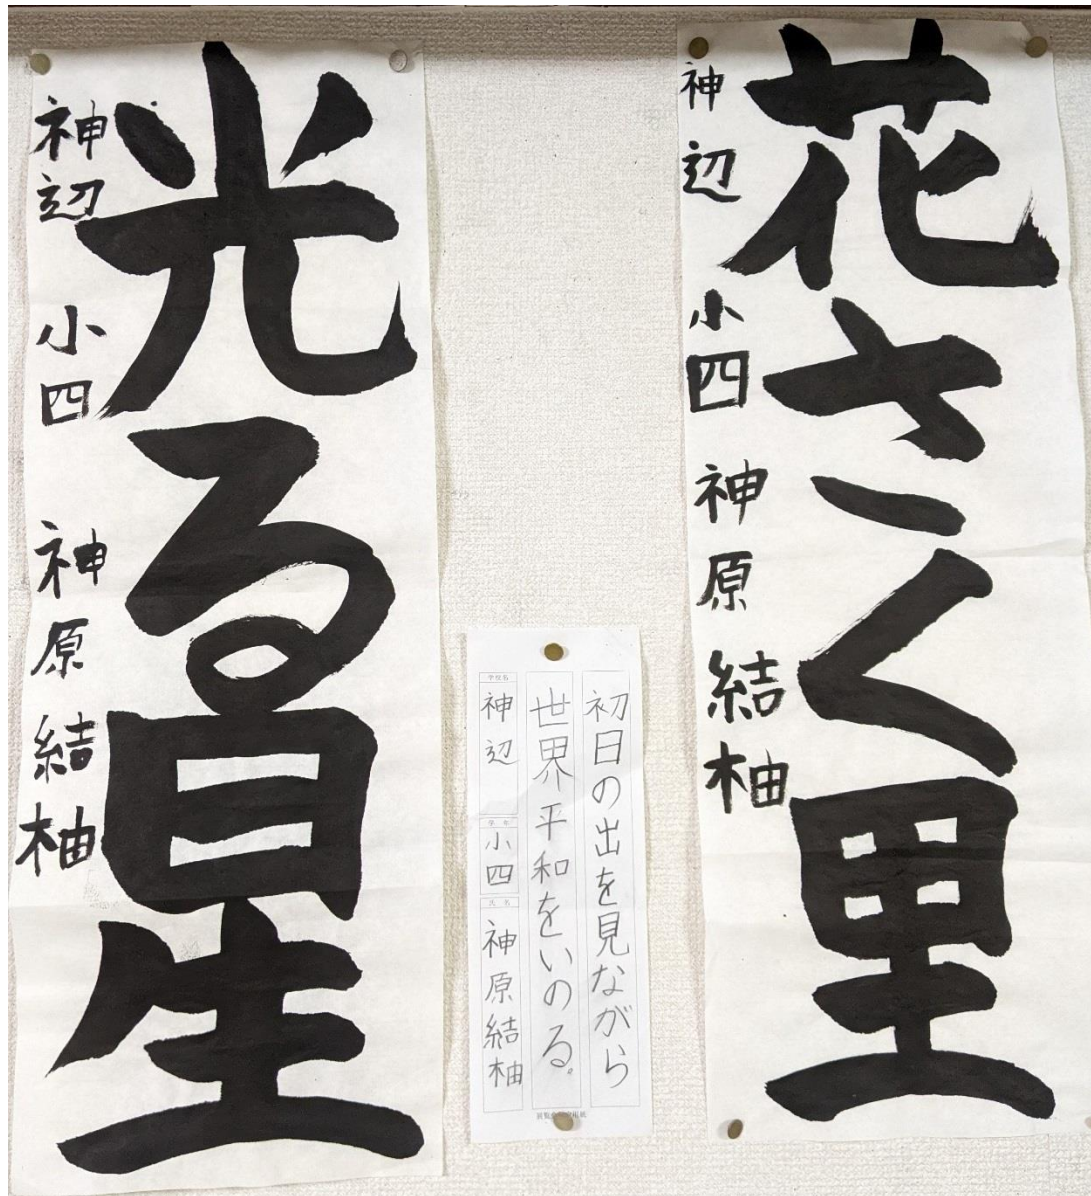 花さく里
神辺 小四 神原結柚
初日の出を見ながら
世界平和をいのる。
学校名 神辺 学年 小四 氏名 神原結柚
光る星
神辺 小四 神原結柚